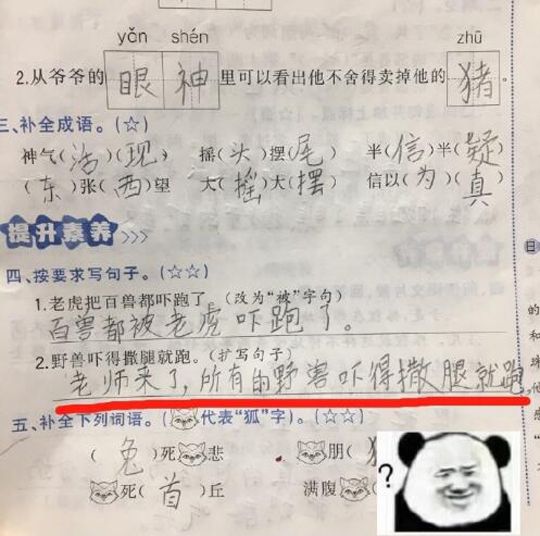 yǎn shén zhū
2.从爷爷的 眼 神 里可以看出他不舍得卖掉他的 猪 。
三、补全成语。(☆)
神气(活)(现) 摇(头)摆(尾) 半(信)半(疑)
(东)张(西)望 大(摇)大(摆) 信以(为)(真)
提升素养>>>
四、按要求写句子。(☆☆)
1.老虎把百兽都吓跑了。(改为“被”字句)
百兽都被老虎吓跑了。
2.野兽吓得撒腿就跑。(扩写句子)
老师来了,所有的野兽吓得撒腿就跑
五、补全下列词语。( 代表“狐”字)。(☆☆)
(兔)死 悲 朋(
死(首)丘 满腹 (
?
日
的
和
珠
他
感